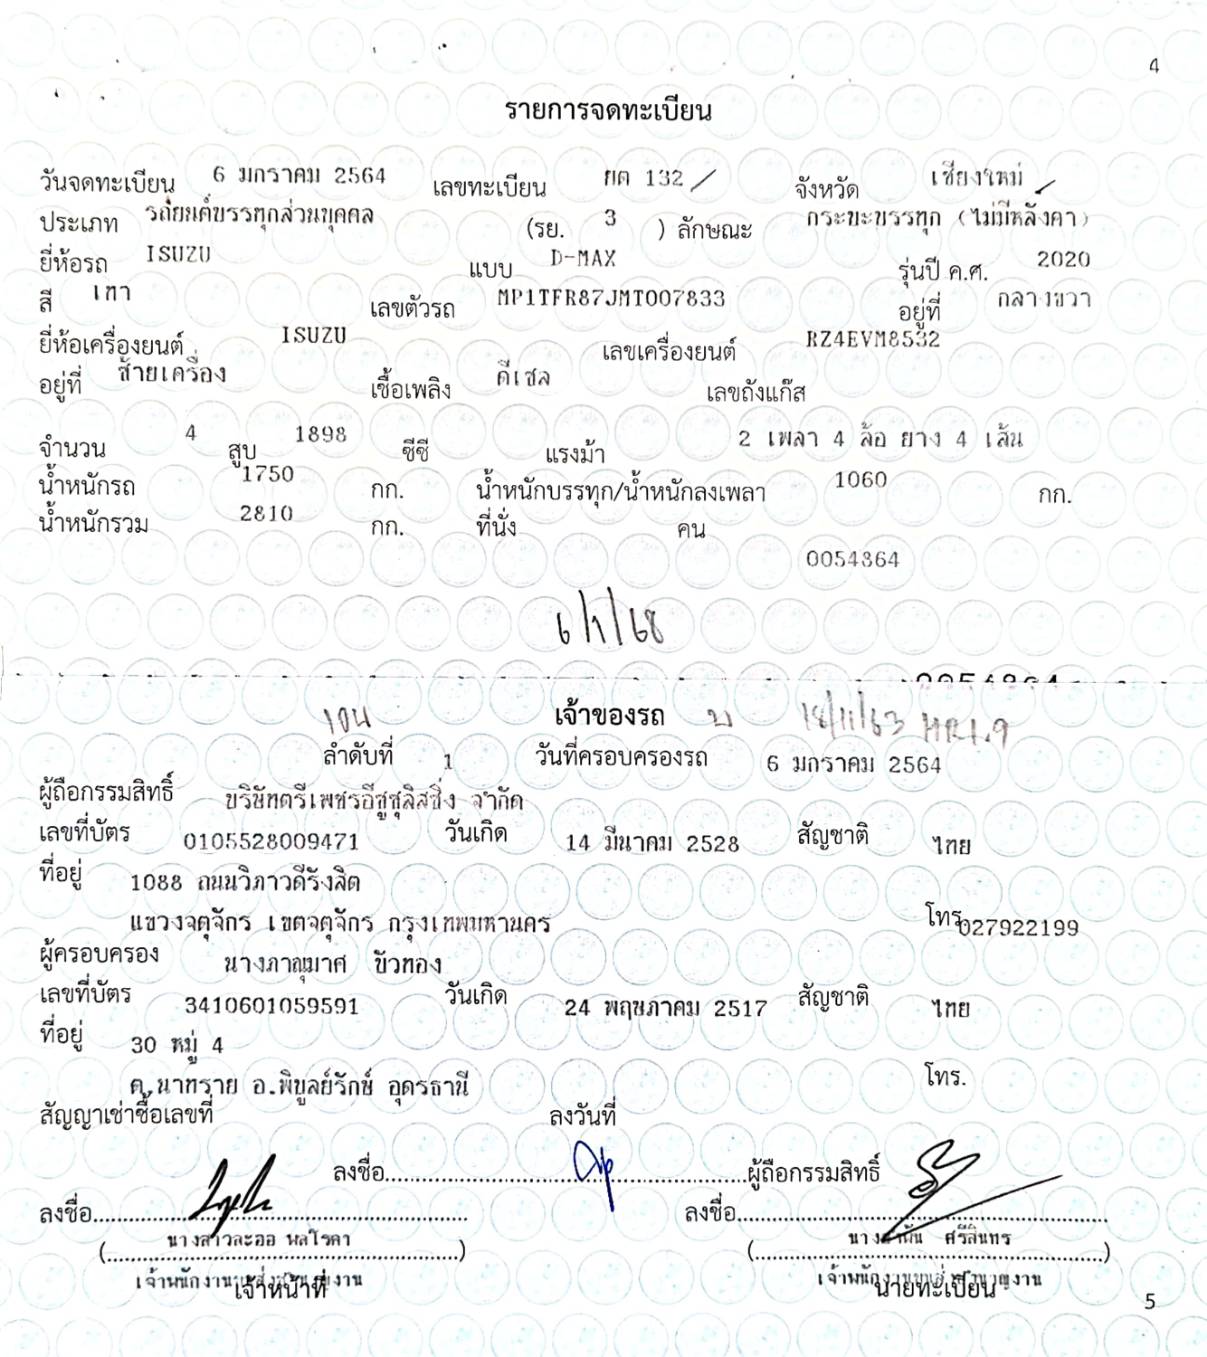 4
รายการจดทะเบียน
วันจดทะเบียน 6 มกราคม 2564 เลขทะเบียน ยต 132 / จังหวัด เชียงใหม่ /
ประเภท รถยนต์บรรทุกส่วนบุคคล (รย. 3 ) ลักษณะ กระบะบรรทุก (ไม่มีหลังคา)
ยี่ห้อรถ ISUZU แบบ D-MAX รุ่นปี ค.ศ. 2020
สี เทา เลขตัวรถ MP1TFR87JMT007833 อยู่ที่ กลางขวา
ยี่ห้อเครื่องยนต์ ISUZU เลขเครื่องยนต์ RZ4EVM8532
อยู่ที่ ซ้ายเครื่อง เชื้อเพลิง ดีเซล เลขถังแก๊ส
จำนวน 4 สูบ 1898 ซีซี แรงม้า 2 เพลา 4 ล้อ ยาง 4 เส้น
น้ำหนักรถ 1750 กก. น้ำหนักบรรทุก/น้ำหนักลงเพลา 1060 กก.
น้ำหนักรวม 2810 กก. ที่นั่ง คน
0054864
6/1/68
0054864
โอน เจ้าของรถ 18/11/63
ลำดับที่ 1 วันที่ครอบครองรถ 6 มกราคม 2564
ผู้ถือกรรมสิทธิ์ บริษัทตรีเพชรอีซูซุลิสซิ่ง จำกัด
เลขที่บัตร 0105528009471 วันเกิด 14 มีนาคม 2528 สัญชาติ ไทย
ที่อยู่ 1088 ถนนวิภาวดีรังสิต
แขวงจตุจักร เขตจตุจักร กรุงเทพมหานคร โทร. 027922199
ผู้ครอบครอง นางภาณุมาศ บัวทอง
เลขที่บัตร 3410601059591 วันเกิด 24 พฤษภาคม 2517 สัญชาติ ไทย
ที่อยู่ 30 หมู่ 4
ต.นาทราย อ.พิบูลย์รักษ์ อุดรธานี โทร.
สัญญาเช่าซื้อเลขที่ ลงวันที่
ลงชื่อ ผู้ถือกรรมสิทธิ์
ลงชื่อ ลงชื่อ
(นางสาวละออ พลโรคา) (ศรีสินทร)
เจ้าพนักงานขนส่งชำนาญงาน เจ้าพนักงานขนส่งชำนาญงาน
เจ้าหน้าที่ นายทะเบียน
5